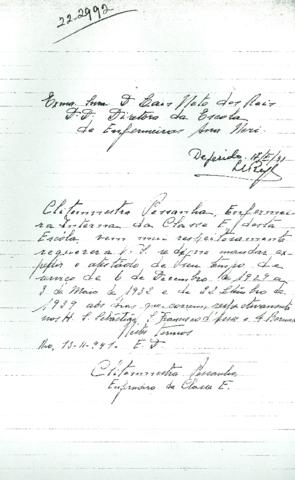 22-2992
Exma. Snra. D. Lais Neto dos Reis
D.D. Diretora da Escola
de Enfermeiras Ana Neri.
Deferido.
Clitemnestra Pessanha, Enfermei
ra Interna da Classe E, desta
Escola vem mui respeitosamente
requerer a V. S. se digne mandar ex-
pedir o atestado de seu tempo de
serviço de 6 de Fevereiro de 1929 a
3 de Maio de 1932 e de 22 de
1939 até hoje que
nos H. S. Sebastião, S. Francisco d'Assis e A. Bernardes
Nestes Termos
Rio, 13-11-941. E. D.
Clitemnestra Pessanha
Enfermeira da Classe E.